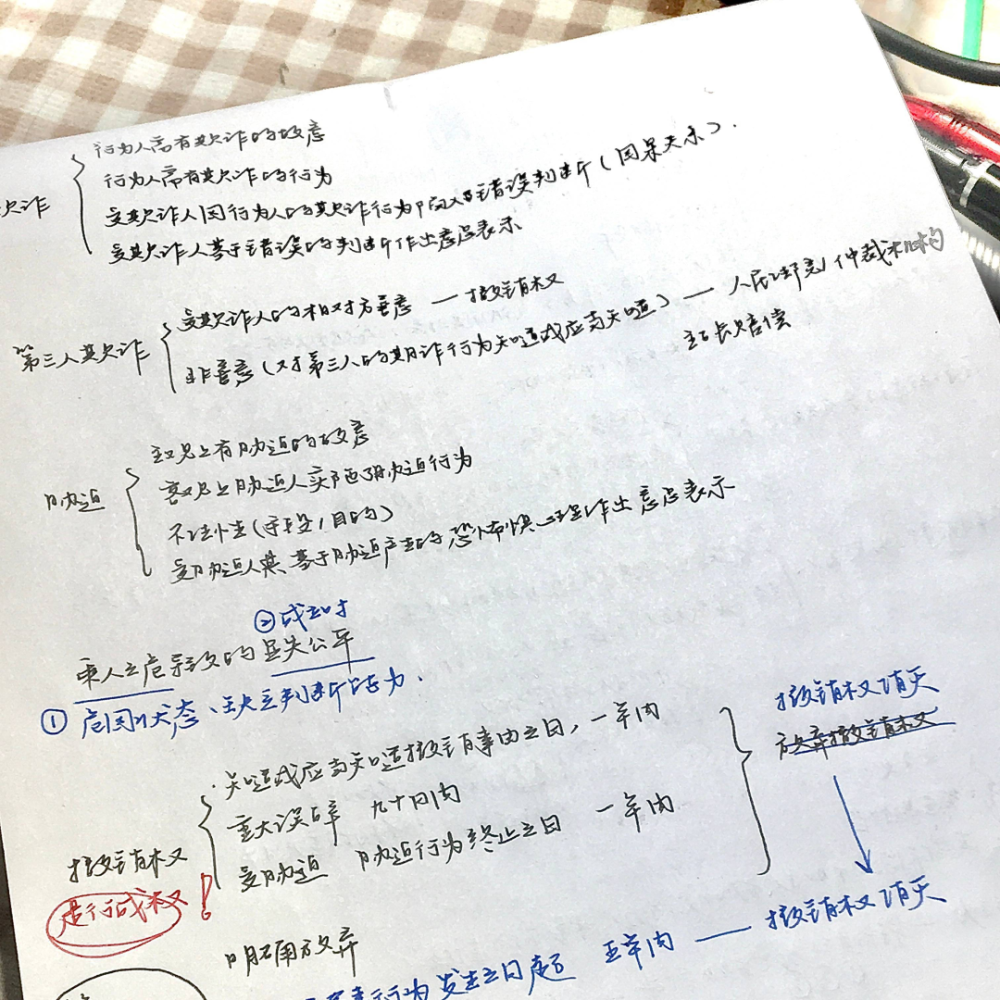 行为人需有欺诈的故意
行为人需有欺诈的行为
欺诈
受欺诈人因行为人的欺诈行为陷入错误判断（因果关系）.
受欺诈人基于错误的判断作出意思表示
受欺诈人的相对方善意 — 撤销权
第三人欺诈
非善意（对第三人的欺诈行为知道或应当知道）— 人民法院/仲裁机构
主张赔偿
主观上有胁迫的故意
客观上胁迫人实施了胁迫行为
胁迫
不法性（手段/目的）
受胁迫人基于胁迫产生的恐怖惧心理作出意思表示
②成立时
乘人之危导致的显失公平
①危困状态、缺乏判断能力.
知道或应当知道撤销事由之日，一年内
撤销权消灭
放弃撤销权
重大误解 九十日内
受胁迫 胁迫行为终止之日 一年内
撤销权
是形成权！
明确放弃
行为发生之日起 五年内 — 撤销权消灭